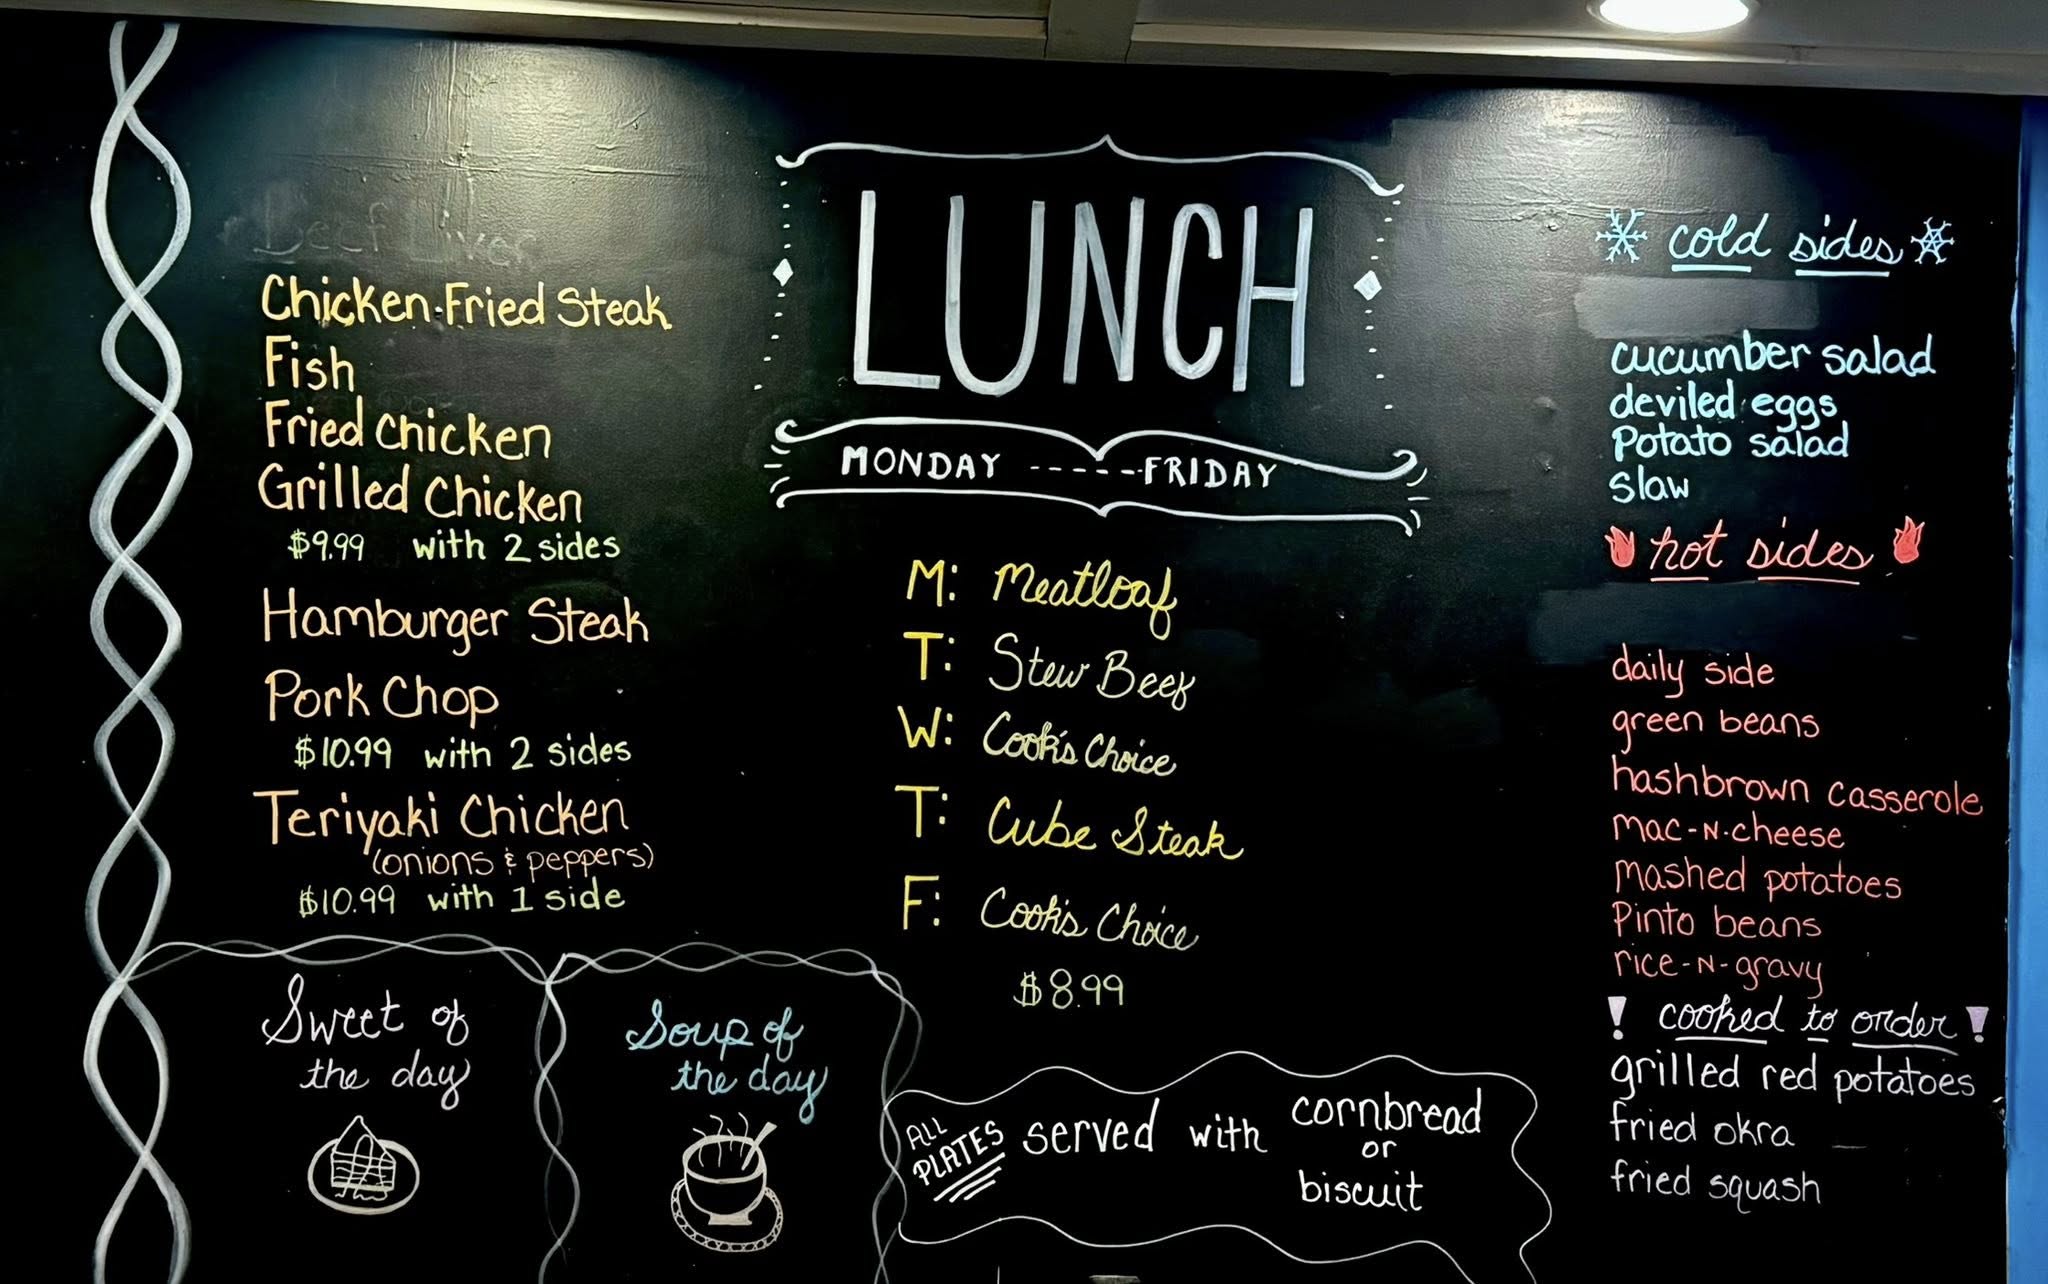 Beef Liver
Chicken Fried Steak
Fish
Fried Chicken
Grilled Chicken
$9.99 with 2 sides
Hamburger Steak
Pork Chop
$10.99 with 2 sides
Teriyaki Chicken
(onions & peppers)
$10.99 with 1 side
Sweet of
the day
Soup of
the day
LUNCH
MONDAY -----FRIDAY
M: Meatloaf
T: Stew Beef
W: Cook's Choice
T: Cube Steak
F: Cook's Choice
$8.99
ALL
PLATES served with cornbread
or
biscuit
cold sides
cucumber salad
deviled eggs
Potato salad
slaw
hot sides
daily side
green beans
hashbrown casserole
mac-N-cheese
mashed potatoes
Pinto beans
rice-N-gravy
! cooked to order !
grilled red potatoes
fried okra
fried squash